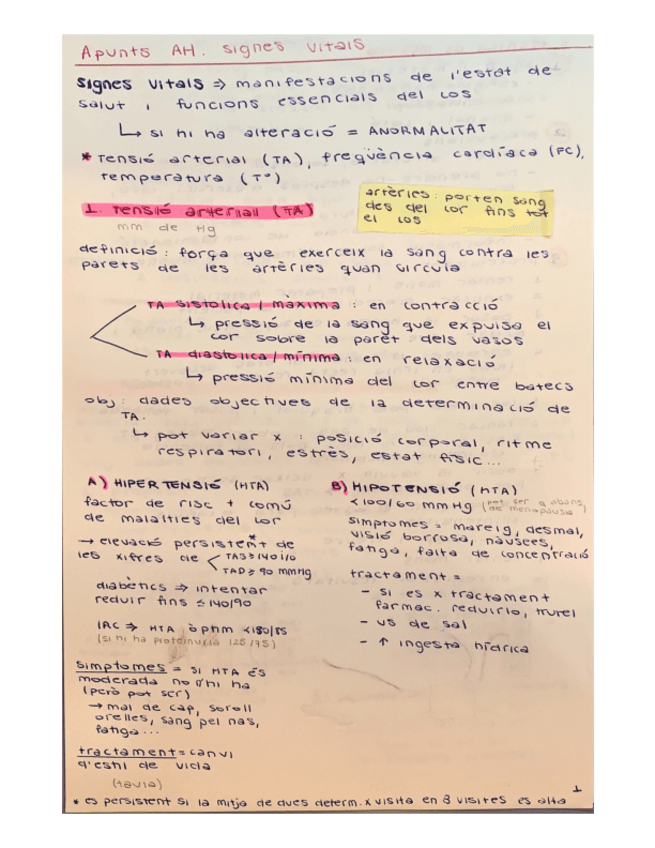 Apunts AH. signes vitals
signes vitals ⇒ manifestacions de l'estat de
salut i funcions essencials del cos
↳ si hi ha alteració = ANORMALITAT
* Tensió arterial (TA), freqüència cardíaca (FC),
temperatura (Tª)
1. Tensió arterial (TA)
mm de Hg
artèries: porten sang
des del cor fins tot
el cos
definició: força que exerceix la sang contra les
parets de les artèries quan circula
TA sistolica / màxima : en contracció
↳ pressió de la sang que expulsa el
cor sobre la paret dels vasos
TA diastolica / mínima : en relaxació
↳ pressió mínima del cor entre batecs
obj: dades objectives de la determinació de
TA.
↳ pot variar x : posició corporal, ritme
respiratori, estrès, estat físic...
A) HIPERTENSIÓ (HTA)
factor de risc + comú
de malalties del cor
→ elevació persistent* de
les xifres de < TAS ≥ 140 i/o
TAD ≥ 90 mmHg
diabètics ⇒ intentar
reduir fins ≤ 140/90
IRC ⇒ HTA òptim <130/85
(si hi ha proteinuria 125/75)
símptomes = si HTA és
moderada no n'hi ha
(però pot ser)
→ mal de cap, soroll
orelles, sang pel nas,
fatiga...
tractament = canvi
d'estil de vida
B) HIPOTENSIÓ (HTA)
<100/60 mmHg (pot ser a
de menopausa)
símptomes = mareig, desmai,
visió borrosa, nàusees,
fatiga, falta de concentració
tractament =
- si es x tractament
farmac. reduirlo,
- ús de sal
- ↑ ingesta hídrica
* es persistent si la mitja de dues determ. x visita en 3 visites és alta
1